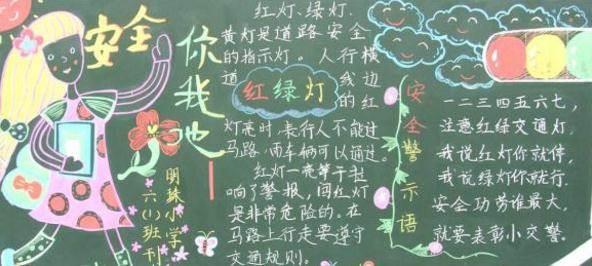 安全
你我他
明珠小学
六(1)班刊
红灯、绿灯、
黄灯是道路安全
的指示灯。人行横
道
线边
红绿灯
的红
灯亮时,行人不能过
马路,而车辆可以通过。
红灯一亮等于拉
响了警报,闯红灯
是非常危险的。在
马路上行走要遵守
交通规则。
安全警示语
一二三四五六七,
注意红绿交通灯.
我说红灯你就停,
我说绿灯你就行.
安全功劳谁最大,
就要表彰小交警。